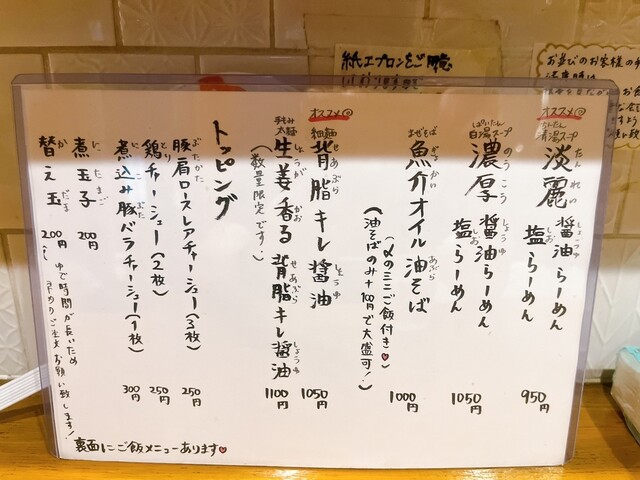 オススメ◎
清湯スープ
淡麗 醤油らーめん
塩らーめん
950円
白湯スープ
濃厚 醤油らーめん
塩らーめん
1050円
魚介オイル油そば
1000円
(〆のミニご飯付き♥
油そばのみ+100円で大盛可!)
オススメ◎
細麺
背脂キレ醤油
1050円
手もみ太麺
生姜香る背脂キレ醤油
1100円
(数量限定です!)
トッピング
豚肩ロースレアチャーシュー(3枚)
250円
鶏チャーシュー(2枚)
250円
煮込み豚バラチャーシュー(1枚)
300円
煮玉子
200円
替え玉
200円
ゆで時間が長いため
早めのご注文お願い致します!
裏面にご飯メニューあります♥
紙エプロンをご
お並びのお客様の